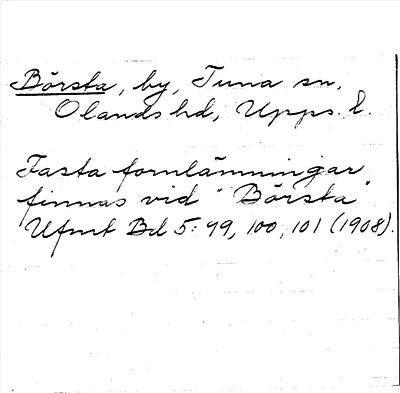 Börsta, by, Tuna sn,
Olands hd, Upps. l.
Fasta fornlämningar
finnas vid "Börsta"
Ufmt Bd 5: 99, 100, 101 (1908).